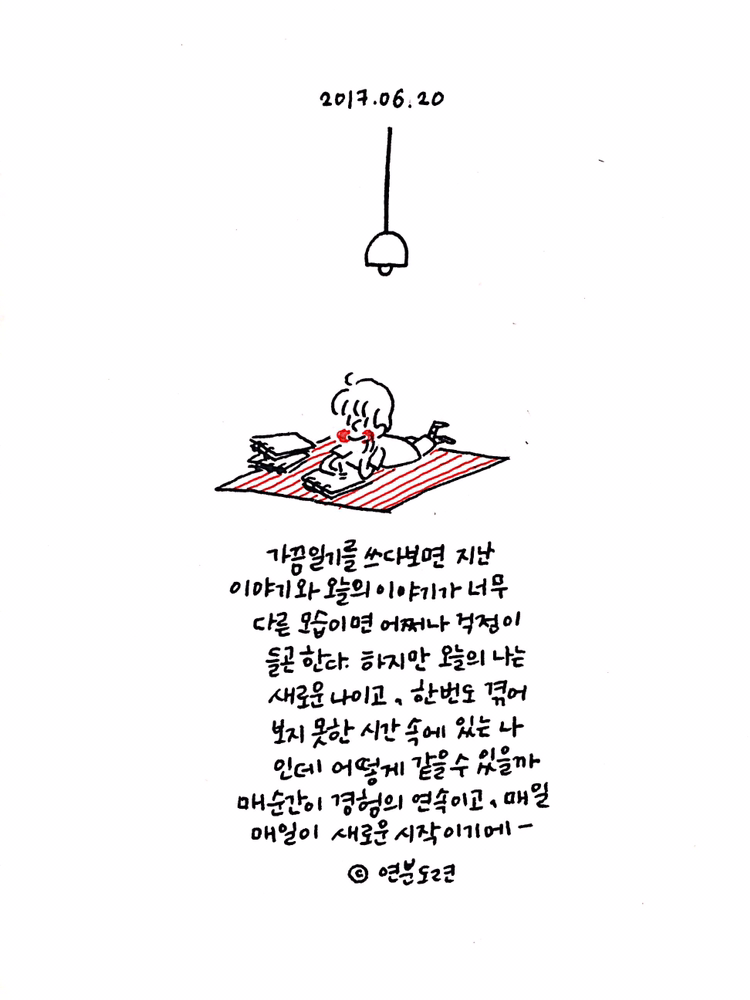 2017.06.20
가끔일기를 쓰다보면 지난
이야기와 오늘의 이야기가 너무
다른 모습이면 어쩌나 걱정이
들곤 한다. 하지만 오늘의 나는
새로운 나이고, 한번도 겪어
보지 못한 시간 속에 있는 나
인데 어떻게 같을 수 있을까
매순간이 경험의 연속이고, 매일
매일이 새로운 시작이기에-
© 연분도련